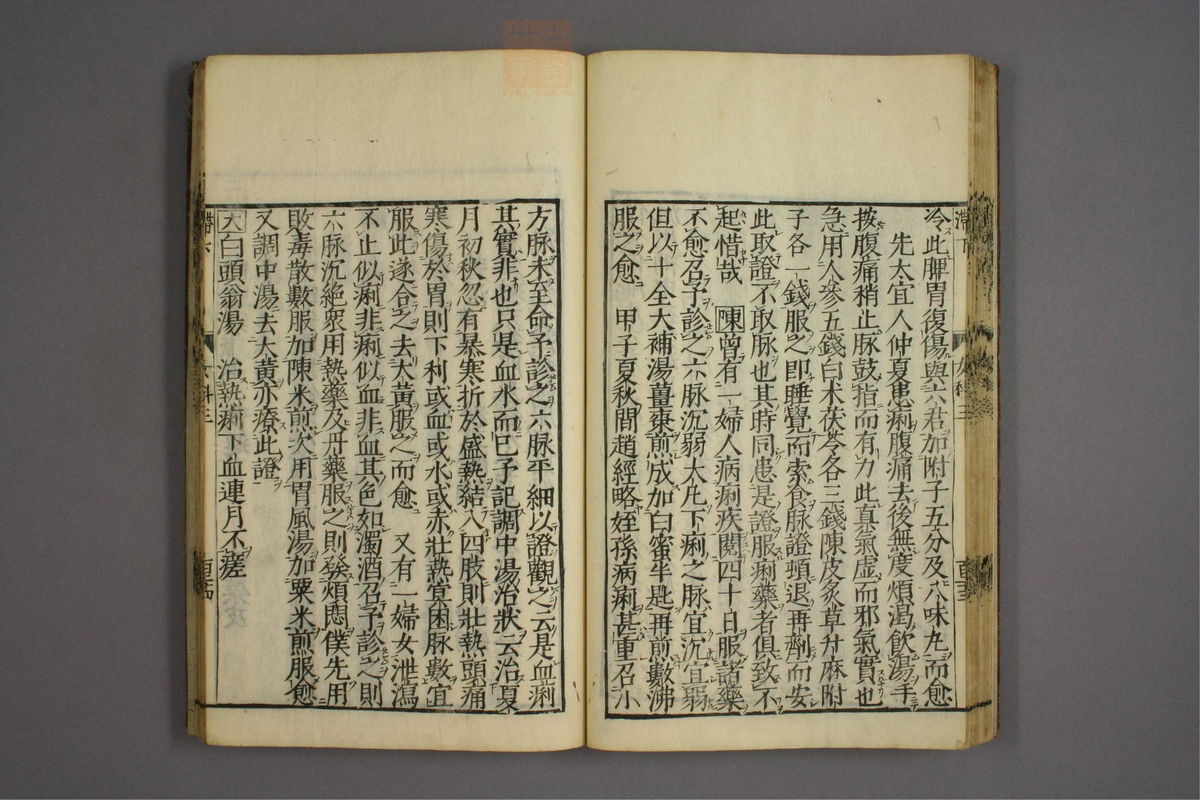 冷此脾胃復傷與六君加附子五分及八味丸而愈
先太宜人仲夏患痢腹痛去後無度煩渴飲湯手
按腹痛稍止脉鼓指而有力此真氣虚而邪氣實也
急用人參五錢白术茯苓各三錢陳皮炙草升麻附
子各一錢服之即睡覺而索食脉證頓退再劑而安
此取證不取脉也其時同患是證服痢藥者俱致不
起惜哉　陳曾有一婦人病痢疾越四十日服諸藥
不愈召予診之六脉沉弱大凡下痢之脉宜沉宜弱
但以十全大補湯薑棗煎成加白蜜半匙再煎數沸
服之愈　甲子夏秋間趙經略姪孫病痢甚重召小
方脉未至命予診之六脉平細以證觀之云是血痢
其實非也只是血水而已予記調中湯治狀云治夏
月初秋忽有暴寒折於盛熱結入四肢則壯熱頭痛
寒傷於胃則下利或血或水或赤壯熱冥困脉數宜
服此遂合之去大黃服之而愈　又有一婦女泄瀉
不止似痢非痢似血非血其色如濁酒召予診之則
六脉沉絶衆用熱藥及丹藥服之則發煩悶僕先用
敗毒散數服加陳米煎次用胃風湯加粟米煎服愈
又調中湯去大黃亦療此證
大白頭翁湯　治熱痢下血連月不瘥
帶下
女科三
百三
帶下
女科三
百四